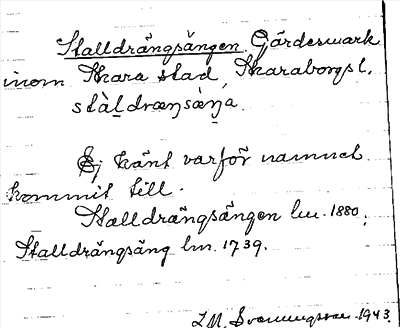 Stalldrängsängen. Gärdesmark
inom Skara stad, Skaraborgs l.
stàl̠dræŋsæ̀ŋa.
Ej känt varför namnet
kommit till.
Stalldrängsängen lm. 1880;
Stalldrängsäng lm. 1739.
L.M. Svenungsson 1943.